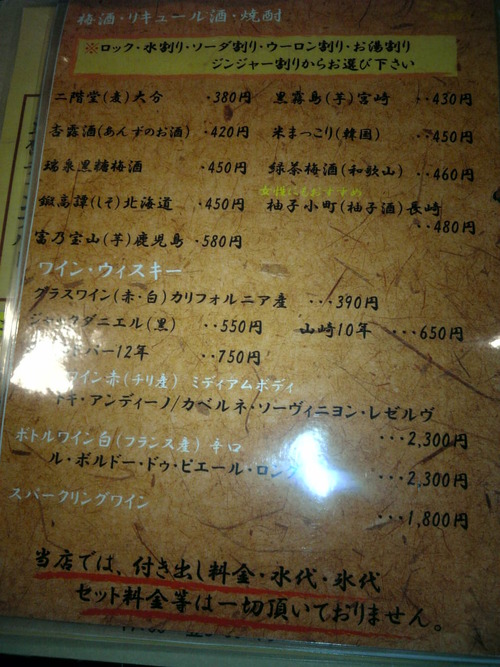 梅酒・リキュール酒・焼酎
※ロック・水割り・ソーダ割り・ウーロン割り・お湯割り
ジンジャー割りからお選び下さい
二階堂(麦)大分 ・380円 黒霧島(芋)宮崎 ・・430円
杏露酒(あんずのお酒) ・420円 米まっこり(韓国) ・・450円
瑞泉黒糖梅酒 ・450円 緑茶梅酒(和歌山) ・・460円
女性にもおすすめ
鍛高譚(しそ)北海道 ・450円 柚子小町(柚子酒)長崎
・・480円
富乃宝山(芋)鹿児島 ・580円
ワイン・ウィスキー
グラスワイン(赤・白)カリフォルニア産 ・・・390円
ジャックダニエル(黒) ・・550円 山崎10年 ・・・650円
バー12年 ・・750円
ワイン赤(チリ産) ミディアムボディ
ドキ・アンディーノ/カベルネ・ソーヴィニヨン・レゼルヴ
・・・2,300円
ボトルワイン白(フランス産) 辛口
ル・ボルドー・ドゥ・ピエール・ロン
・・・2,300円
スパークリングワイン
・・・1,800円
当店では、付き出し料金・水代・氷代
セット料金等は一切頂いておりません。